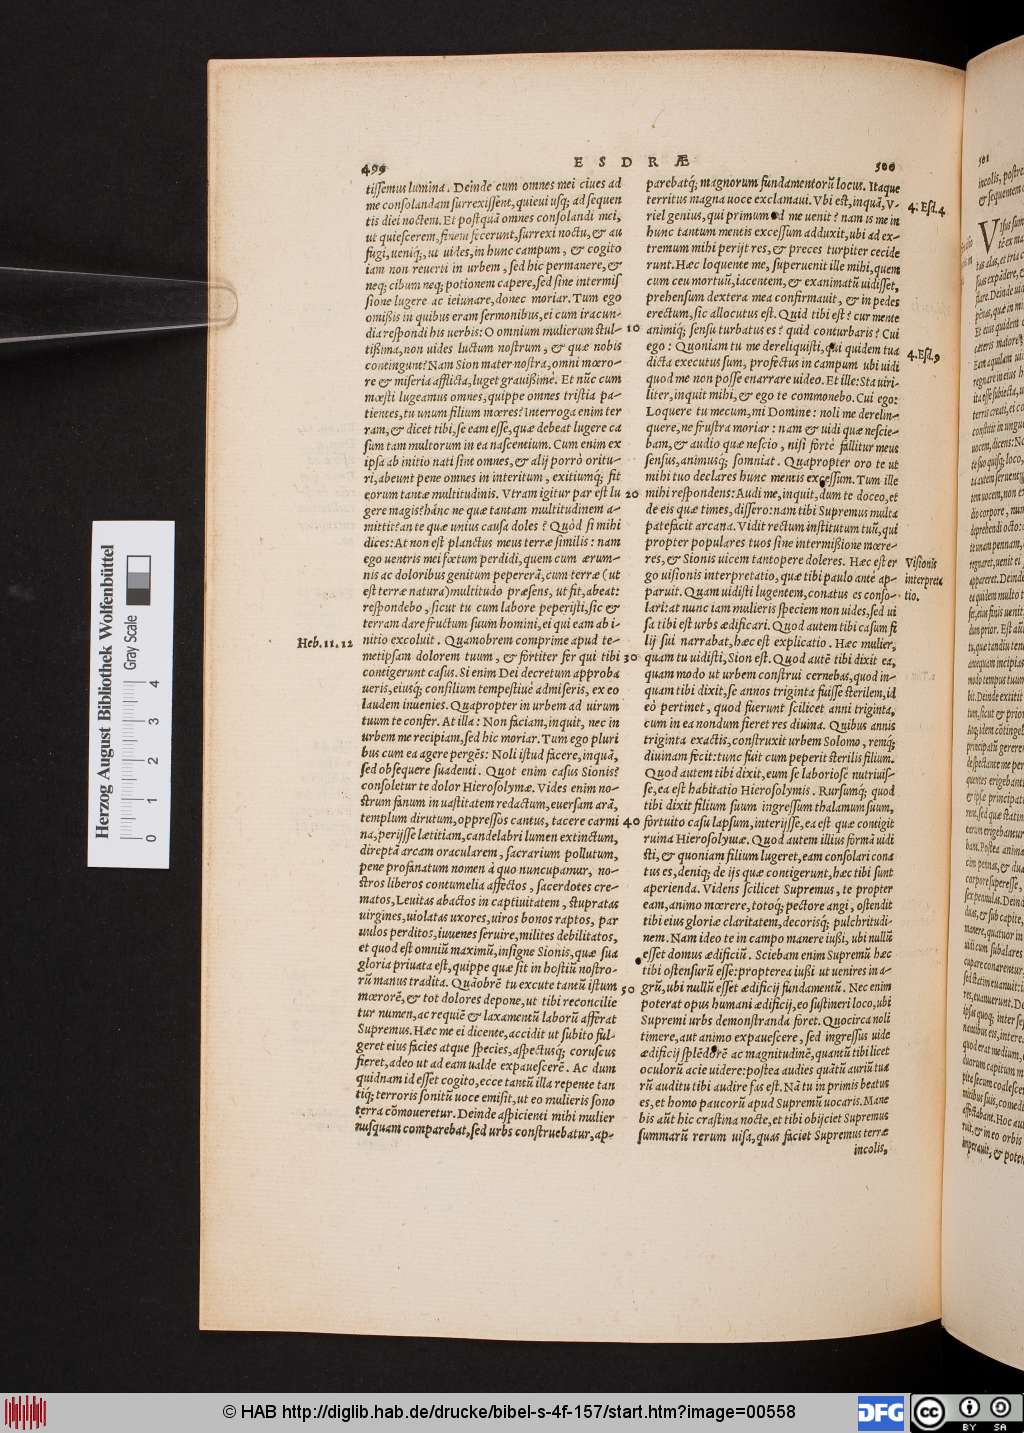 499
E S D R Æ
500
tissemus lumina. Deinde cum omnes mei ciues ad
me consolandam surrexissent, quieui usq; ad sequen
tis diei noctem. Et postquã omnes consolandi mei,
ut quiescerem, finem fecerunt, surrexi noctu, & au
fugi, ueniq;, ut uides, in hunc campum, & cogito
iam non reuerti in urbem, sed hic permanere, &
neq; cibum neq; potionem capere, sed sine intermis
sione lugere ac ieiunare, donec moriar. Tum ego
omißis in quibus eram sermonibus, ei cum iracun-
dia respondi his uerbis: O omnium mulierum stul-
tißima, non uides luctum nostrum, & quæ nobis
contingunt? Nam Sion mater nostra, omni mœro-
re & miseria afflicta, luget grauißimè. Et nũc cum
mœsti lugeamus omnes, quippe omnes tristia pa-
tientes, tu unum filium mœres? Interroga enim ter
ram, & dicet tibi, se eam esse, quæ debeat lugere ca
sum tam multorum in ea nascentium. Cum enim ex
ipsa ab initio nati sint omnes, & alij porrò oritu-
ri, abeunt pene omnes in interitum, exitiumq; fit
eorum tantæ multitudinis. Vtram igitur par est lu
gere magis? hánc ne quæ tantam multitudinem a-
mittit? an te quæ unius causa doles? Quòd si mihi
dices: At non est planctus meus terræ similis: nam
ego uentris mei fœtum perdidi, quem cum ærum-
nis ac doloribus genitum pepererã, cum terræ (ut
est terræ natura) multitudo præsens, ut fit, abeat:
respondebo, sicut tu cum labore peperisti, sic &
terram dare fructum suum homini, et qui eam ab i-
nitio excoluit. Quamobrem comprime apud te-
metipsam dolorem tuum, & fortiter fer qui tibi
contigerunt casus. Si enim Dei decretum approba
ueris, eiusq; consilium tempestiuè admiseris, ex eo
laudem inuenies. Quapropter in urbem ad uirum
tuum te confer. At illa: Non faciam, inquit, nec in
urbem me recipiam, sed hic moriar. Tum ego pluri
bus cum ea agere pergẽs: Noli istud facere, inquã,
sed obsequere suadenti. Quot enim casus Sionis?
consoletur te dolor Hierosolymæ. Vides enim no-
strum fanum in uastitatem redactum, euersam arã,
templum dirutum, oppressos cantus, tacere carmi
na, perijsse lætitiam, candelabri lumen extinctum,
direptã arcam oracularem, sacrarium pollutum,
pene profanatum nomen à quo nuncupamur, no-
stros liberos contumelia affectos, sacerdotes cre-
matos, Leuitas abactos in captiuitatem, stupratas
uirgines, uiolatas uxores, uiros bonos raptos, par
uulos perditos, iuuenes seruire, milites debilitatos,
et quod est omniũ maximũ, insigne Sionis, quæ sua
gloria priuata est, quippe quæ sit in hostiũ nostro-
rũ manus tradita. Quãobrẽ tu excute tantũ istum
mœrorẽ, & tot dolores depone, ut tibi reconcilie
tur numen, ac requiẽ & laxamentũ laborũ afferat
Supremus. Hæc me ei dicente, accidit ut subito ful-
geret eius facies atque species, aspectusq; coruscus
fieret, adeo ut ad eam ualde expauescerẽ. Ac dum
quidnam id esset cogito, ecce tantũ illa repente tan
tiq; terroris sonitũ uoce emisit, ut eo mulieris sono
terra cõmoueretur. Deinde aspicienti mihi mulier
nusquam comparebat, sed urbs construebatur, ap-
Heb. 11. 12
10
20
30
40
50
parebatq; magnorum fundamentorũ locus. Itaque
territus magna uoce exclamaui. Vbi est, inquã, V-
riel genius, qui primum ad me uenit? nam is me in
hunc tantum mentis excessum adduxit, ubi ad ex-
tremum mihi perijt res, & preces turpiter cecide
runt. Hæc loquente me, superuenit ille mihi, quem
cum ceu mortuũ, iacentem, & exanimatũ uidisset,
prehensum dextera mea confirmauit, & in pedes
erectum, sic allocutus est. Quid tibi est? cur mente
animiq; sensu turbatus es? quid conturbaris? Cui
ego: Quoniam tu me dereliquisti, qui quidem tua
dicta executus sum, profectus in campum ubi uidi
quod me non posse enarrare uideo. Et ille: Sta uiri-
liter, inquit mihi, & ego te commonebo. Cui ego:
Loquere tu mecum, mi Domine: noli me derelin-
quere, ne frustra moriar: nam & uidi quæ nescie-
bam, & audio quæ nescio, nisi fortè fallitur meus
sensus, animusq; somniat. Quapropter oro te ut
mihi tuo declares hunc mentis excessum. Tum ille
mihi respondens: Audi me, inquit, dum te doceo, et
de eis quæ times, dissero: nam tibi Supremus multa
patefacit arcana. Vidit rectum institutum tuũ, qui
propter populares tuos sine intermißione mœre-
res, & Sionis uicem tantopere doleres. Hæc est er
go uisionis interpretatio, quæ tibi paulo antè ap-
paruit. Quam uidisti lugentem, conatus es conso-
lari: at nunc iam mulieris speciem non uides, sed ui
sa tibi est urbs ædificari. Quod autem tibi casum fi
lij sui narrabat, hæc est explicatio. Hæc mulier,
quam tu uidisti, Sion est. Quod autẽ tibi dixit ea,
quam modo ut urbem construi cernebas, quod in-
quam tibi dixit, se annos triginta fuisse sterilem, id
eò pertinet, quod fuerunt scilicet anni triginta,
cum in ea nondum fieret res diuina. Quibus annis
triginta exactis, construxit urbem Solomo, remq;
diuinam fecit: tunc fuit cum peperit sterilis filium.
Quod autem tibi dixit, eum se laboriosè nutriuis-
se, ea est habitatio Hierosolymis. Rursumq; quod
tibi dixit filium suum ingressum thalamum suum,
fortuito casu lapsum, interijsse, ea est quæ contigit
ruina Hierosolymæ. Quod autem illius formã uidi
sti, & quoniam filium lugeret, eam consolari cona
tus es, deniq; de ijs quæ contigerunt, hæc tibi sunt
aperienda. Videns scilicet Supremus, te propter
eam, animo mœrere, totoq; pectore angi, ostendit
tibi eius gloriæ claritatem, decorisq; pulchritudi-
nem. Nam ideo te in campo manere iußi, ubi nullũ
esset domus ædificiũ. Sciebam enim Supremũ hæc
tibi ostensurũ esse: propterea iußi ut uenires in a-
grũ, ubi nullũ esset ædificij fundamentũ. Nec enim
poterat opus humani ædificij, eo sustineri loco, ubi
Supremi urbs demonstranda foret. Quocirca noli
timere, aut animo expauescere, sed ingressus uide
ædificij splẽdorẽ ac magnitudinẽ, quantũ tibi licet
oculorũ acie uidere: postea audies quãtũ auriũ tua
rũ auditu tibi audire fas est. Nã tu in primis beatus
es, et homo paucorũ apud Supremũ uocaris. Mane
bis aũt hic crastina nocte, et tibi obijciet Supremus
summarũ rerum uisa, quas faciet Supremus terræ
incolis,
4. Esd. 4
4. Esd. 9
Visionis
interpreta
tio.
501
Herzog August Bibliothek Wolfenbüttel
Gray Scale
0 1 2 3 4
© HAB http://diglib.hab.de/drucke/bibel-s-4f-157/start.htm?image=00558
DFG
cc BY SA